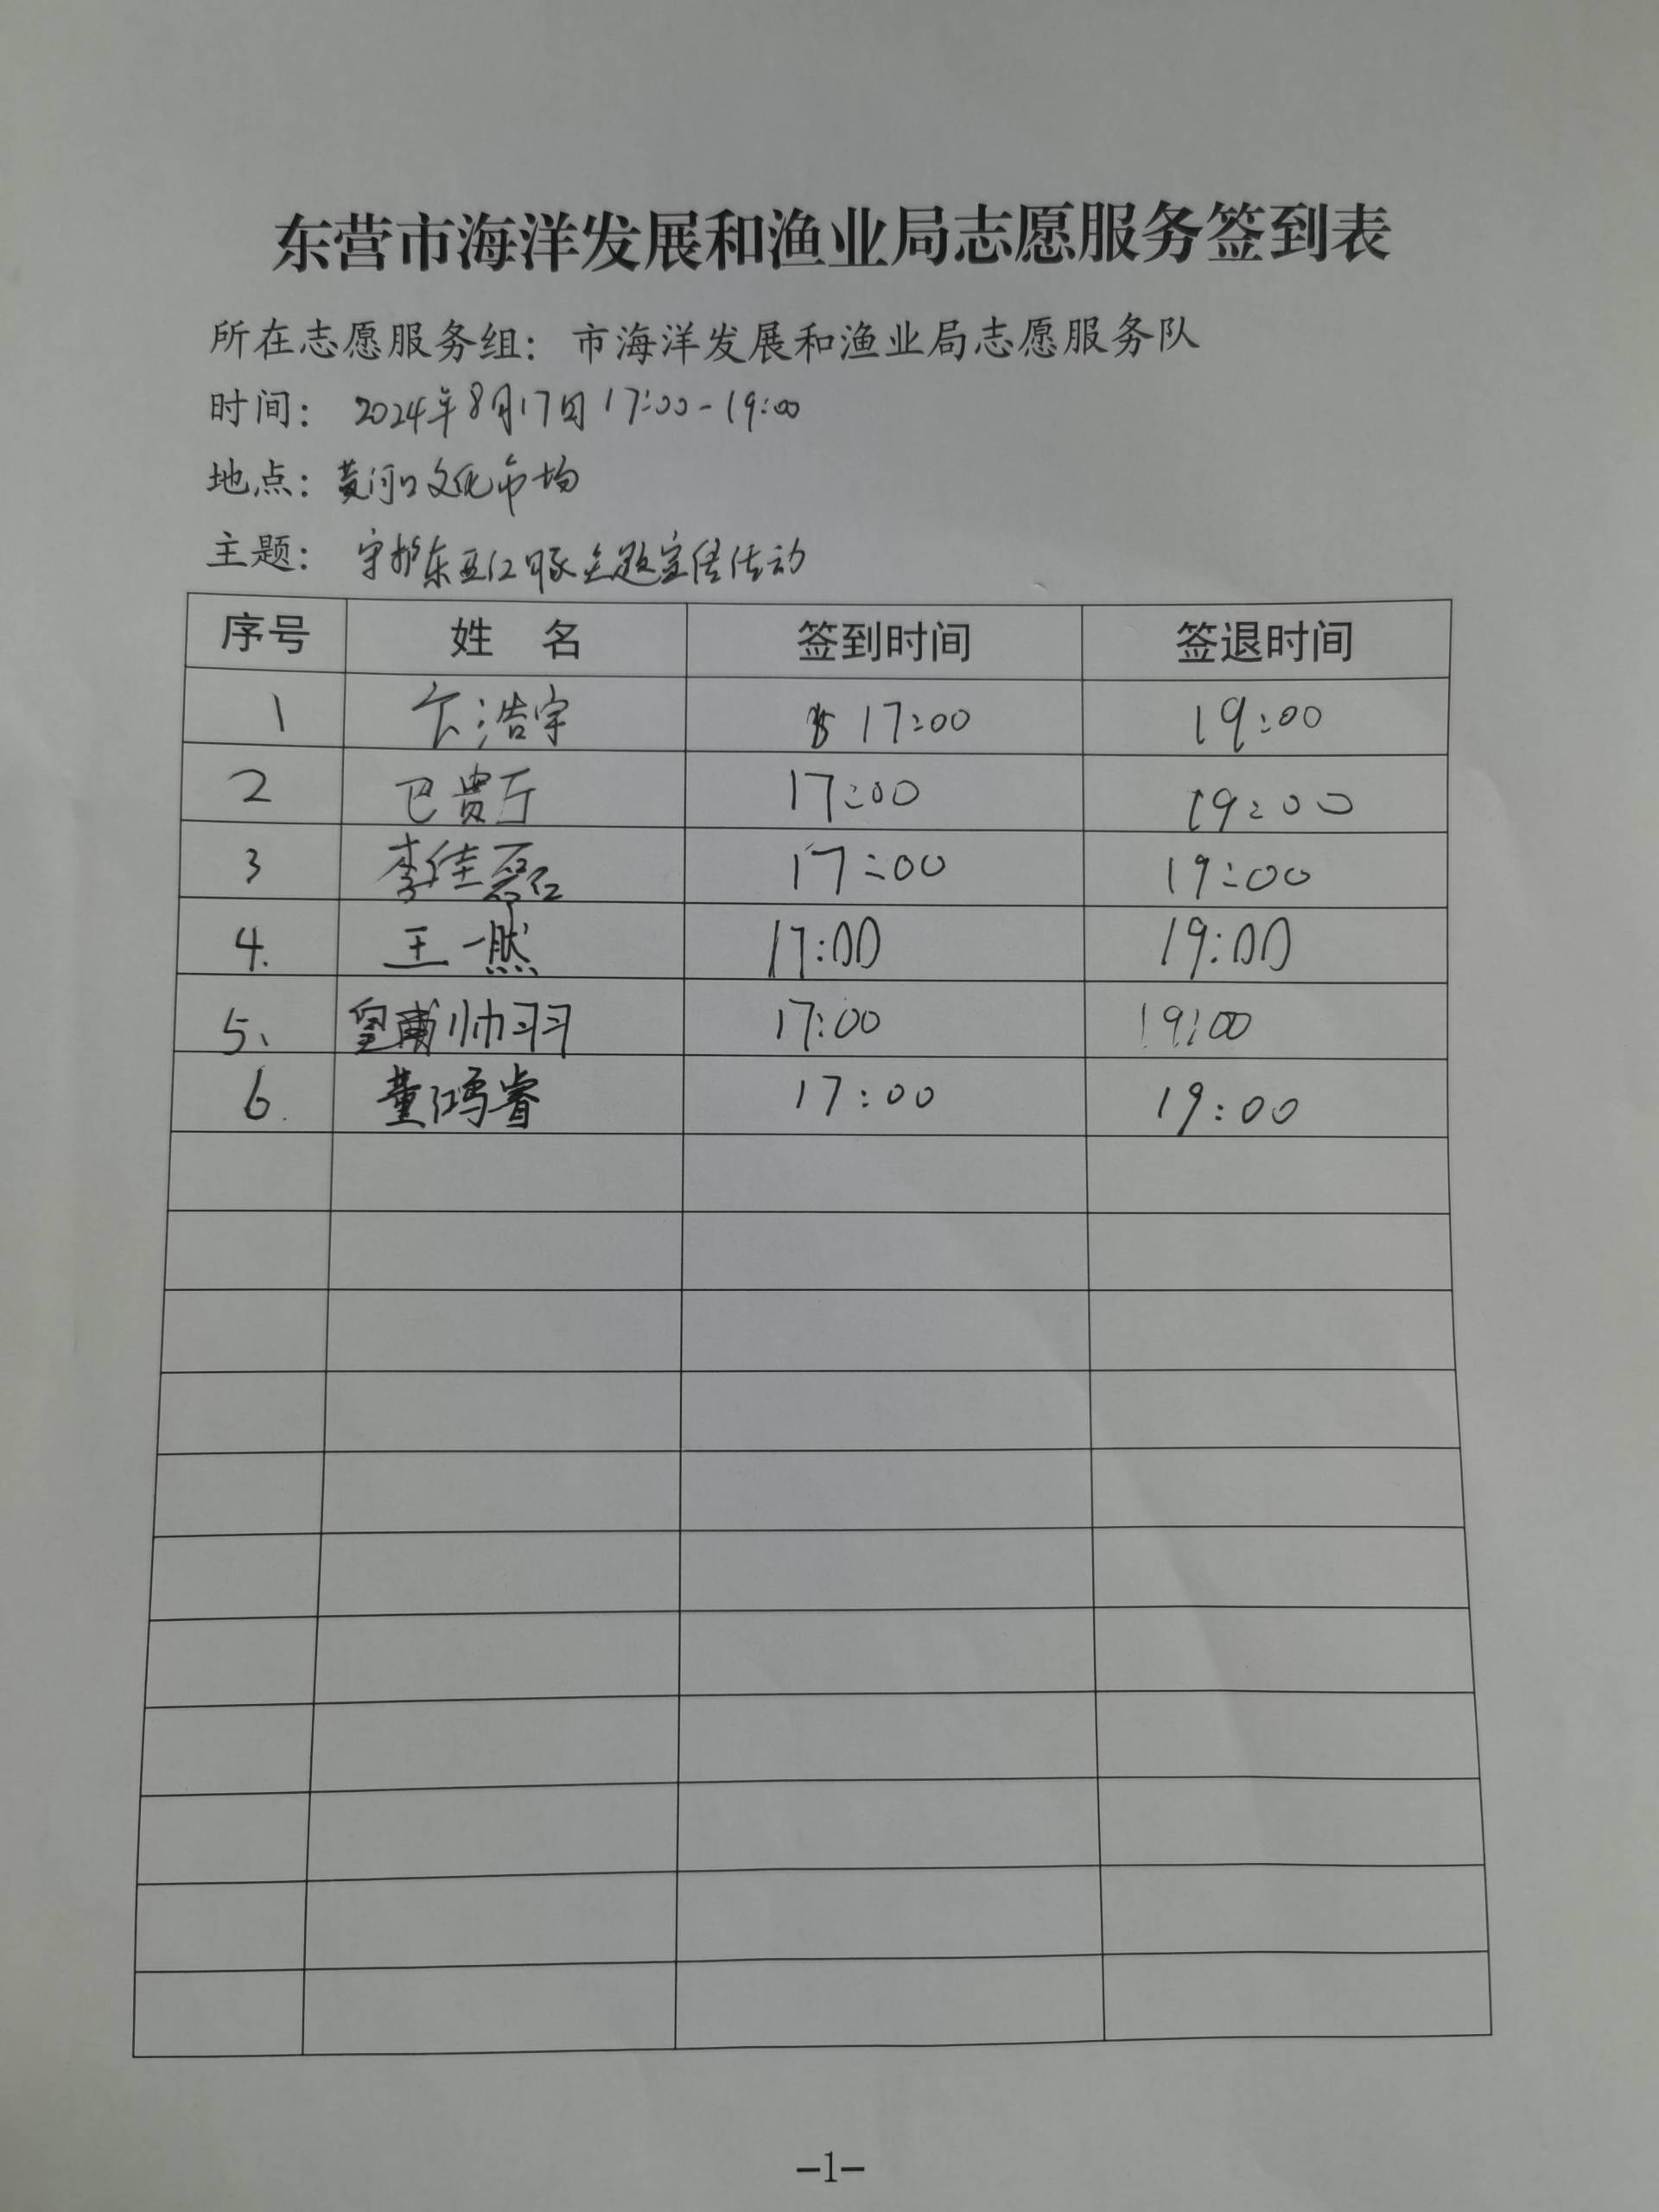 东营市海洋发展和渔业局志愿服务签到表
所在志愿服务组：市海洋发展和渔业局志愿服务队
时间：2024年8月17日17:00-19:00
地点：黄河口文化市场
主题：守护东亚江豚主题宣传活动
序号 姓 名 签到时间 签退时间
1 浩宇 17:00 19:00
2 巴贵 17:00 19:00
3 李佳磊 17:00 19:00
4. 王一然 17:00 19:00
5、 皇甫帅羽 17:00 19:00
6. 董鸿睿 17:00 19:00
-1-